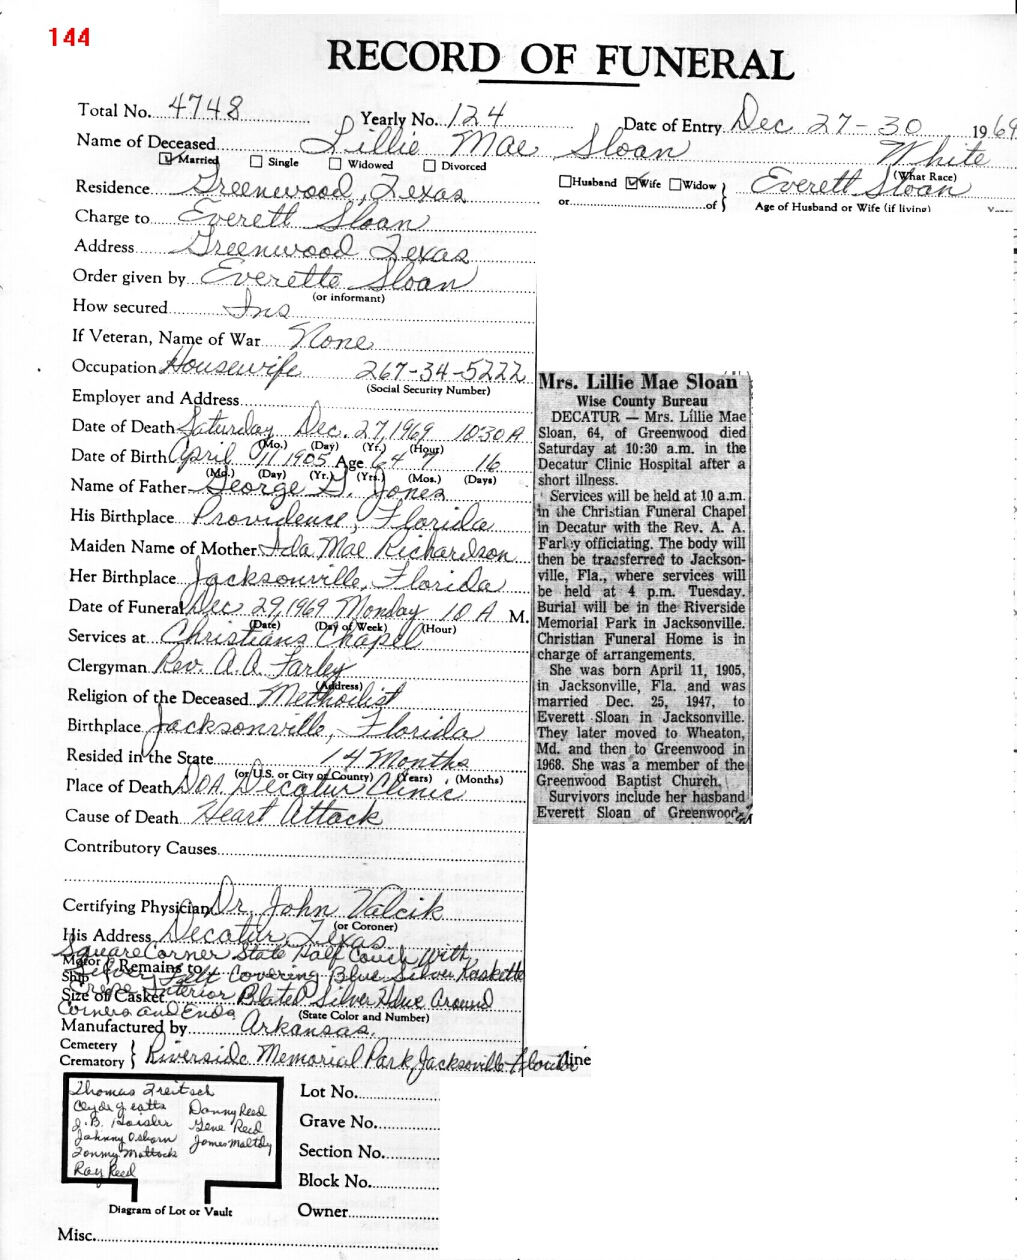 144
RECORD OF FUNERAL
Total No. 4748 Yearly No. 124 Date of Entry Dec 27-30 1969
Name of Deceased Lillie Mae Sloan White
Married Single Widowed Divorced (What Race)
Residence Greenwood, Texas Husband Wife Widow Everett Sloan
or of Age of Husband or Wife (if living)
Charge to Everett Sloan
Address Greenwood Texas
Order given by Everette Sloan
(or informant)
How secured Ins
If Veteran, Name of War None
Occupation Housewife 267-34-5222
(Social Security Number)
Employer and Address
Date of Death Saturday Dec. 27, 1969 10:30 A
(Mo.) (Day) (Yr.) (Hour)
Date of Birth April 11 1905 Age 64 7 16
(Mo.) (Day) (Yr.) (Yrs.) (Mos.) (Days)
Name of Father George Jones
His Birthplace Providence, Florida
Maiden Name of Mother Ida Mae Richardson
Her Birthplace Jacksonville, Florida
Date of Funeral Dec 29, 1969 Monday 10 A M.
(Date) (Day of Week) (Hour)
Services at Christians Chapel
Clergyman Rev. A.A. Farley
(Address)
Religion of the Deceased Methodist
Birthplace Jacksonville, Florida
Resided in the State 14 Months
(or U.S. or City or County) (Years) (Months)
Place of Death DOA Decatur Clinic
Cause of Death Heart Attack
Contributory Causes
Certifying Physician Dr. John Valcik
(or Coroner)
His Address Decatur, Texas
Square Corner State Half Couch With
Motor
Ship Remains to
Silver Felt Covering Blue Silver Kaskette
Crepe Interior
Size of Casket Silver Around
Corners and Ends (State Color and Number)
Manufactured by Arkansas.
Cemetery
Crematory Riverside Memorial Park, Jacksonville Florida line
Thomas
Clyde
J.B. Danny Reed
Johnny Osborn Gene Reed
Tommy Mattock James Maltby
Ray Reed
Diagram of Lot or Vault
Lot No.
Grave No.
Section No.
Block No.
Owner
Misc.
Mrs. Lillie Mae Sloan
Wise County Bureau
DECATUR — Mrs. Lillie Mae
Sloan, 64, of Greenwood died
Saturday at 10:30 a.m. in the
Decatur Clinic Hospital after a
short illness.
Services will be held at 10 a.m.
in the Christian Funeral Chapel
in Decatur with the Rev. A. A.
Farley officiating. The body will
then be transferred to Jackson-
ville, Fla., where services will
be held at 4 p.m. Tuesday.
Burial will be in the Riverside
Memorial Park in Jacksonville.
Christian Funeral Home is in
charge of arrangements.
She was born April 11, 1905,
in Jacksonville, Fla. and was
married Dec. 25, 1947, to
Everett Sloan in Jacksonville.
They later moved to Wheaton,
Md. and then to Greenwood in
1968. She was a member of the
Greenwood Baptist Church.
Survivors include her husband
Everett Sloan of Greenwood.